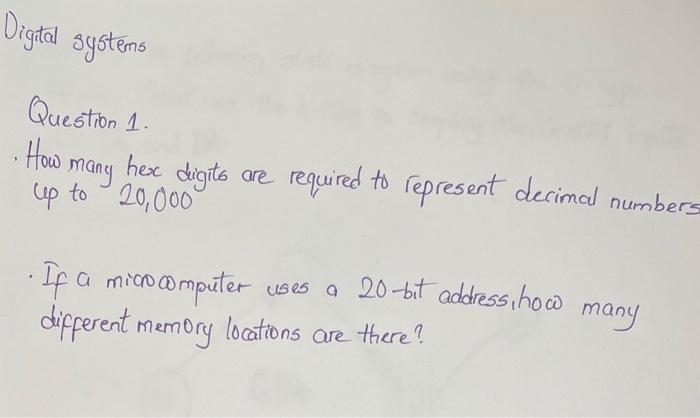 Digital systems
Question 1.
. How many hex digits are required to represent decimal numbers
up to 20,000
. If a microcomputer uses a 20-bit address, how many
different memory locations are there?